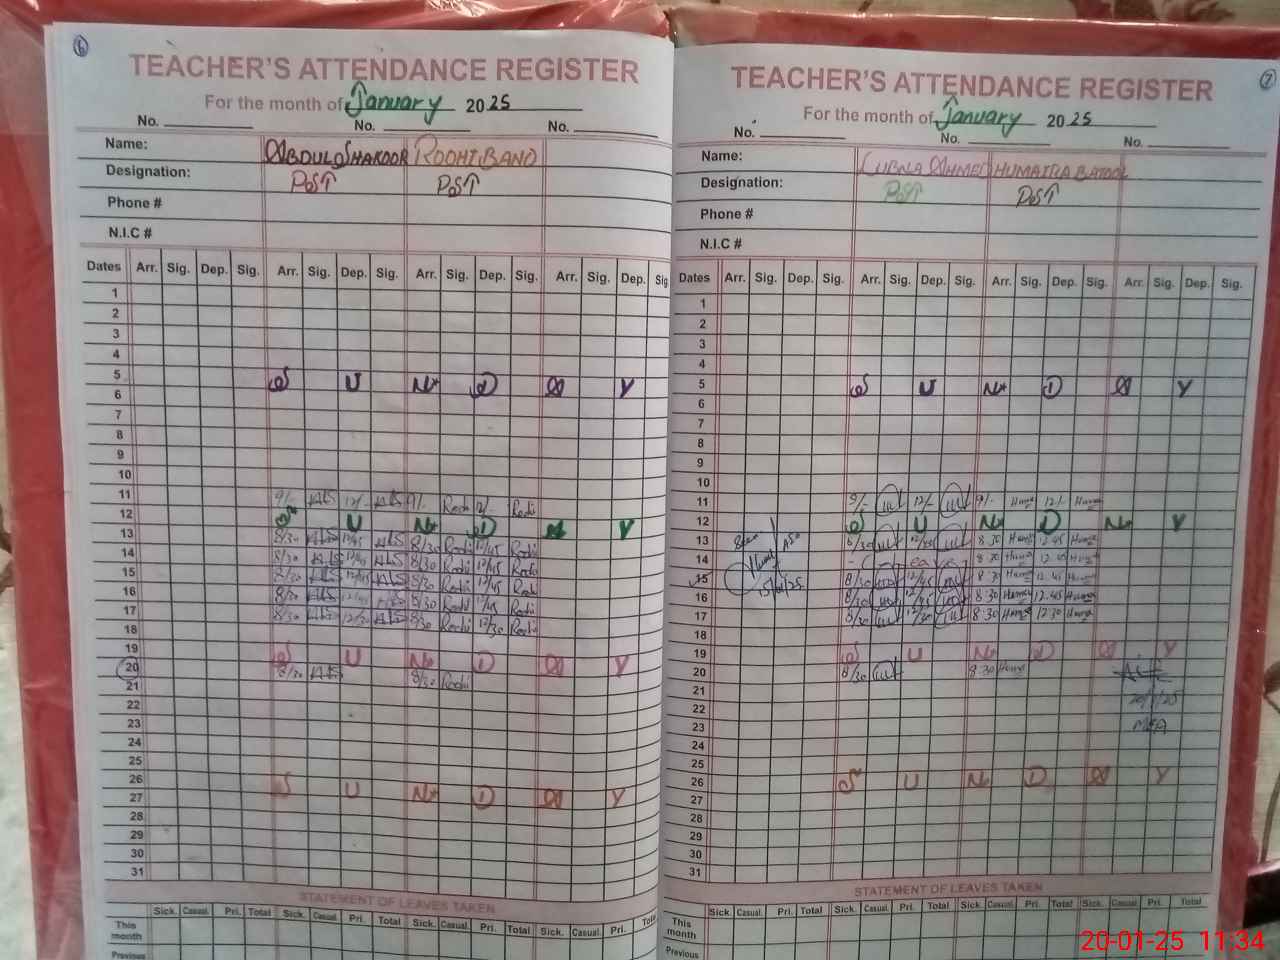 6
TEACHER'S ATTENDANCE REGISTER
For the month of January 2025
No. No. No.
Name: ABDUL SHAKOOR ROOHI BANO
Designation: PST PST
Phone #
N.I.C #
Dates Arr. Sig. Dep. Sig. Arr. Sig. Dep. Sig. Arr. Sig. Dep. Sig. Arr. Sig. Dep. Sig
1
2
3
4
5
6 S U N D A Y
7
8
9
10
11 9/- 12/- 9/- Roohi 12/- Roohi
12 S U N D A Y
13 8/30 12/45 8/30 Roohi 12/45 Roohi
14 8/30 12/45 8/30 Roohi 12/45 Roohi
15 8/30 12/45 8/30 Roohi 12/45 Roohi
16 8/30 12/45 8/30 Roohi 12/45 Roohi
17 8/30 12/30 8/30 Roohi 12/30 Roohi
18
19 S U N D A Y
20 8/30 8/30 Roohi
21
22
23
24
25
26 S U N D A Y
27
28
29
30
31
STATEMENT OF LEAVES TAKEN
Sick. Casual. Pri. Total Sick. Casual. Pri. Total Sick. Casual. Pri. Total Sick. Casual. Pri. Total
This month
Previous
7
TEACHER'S ATTENDANCE REGISTER
For the month of January 2025
No. No. No.
Name: LUBNA AHMED HUMAIRA BATOOL
Designation: PST PST
Phone #
N.I.C #
Dates Arr. Sig. Dep. Sig. Arr. Sig. Dep. Sig. Arr. Sig. Dep. Sig. Arr. Sig. Dep. Sig.
1
2
3
4
5 S U N D A Y
6
7
8
9
10
11 9/- 12/- 9/- Huma 12/- Huma
12 S U N D A Y
13 8/30 12/45 8.30 Huma 12.45 Huma
14 - Leave - 8.30 Huma 12.45 Huma
15 8/30 12/45 8.30 Huma 12.45 Huma
16 8/30 12/45 8.30 Huma 12.45 Huma
17 8/30 12/30 8.30 Huma 12.30 Huma
Seen
15/01/25
18
19 S U N D A Y
20 8/30 8.30 Huma
21
22 20/1/25
23 MEA
24
25
26 S U N D A Y
27
28
29
30
31
STATEMENT OF LEAVES TAKEN
Sick. Casual. Pri. Total Sick. Casual. Pri. Total Sick. Casual. Pri. Total Sick. Casual. Pri. Total
This month
Previous
20-01-25 11:34